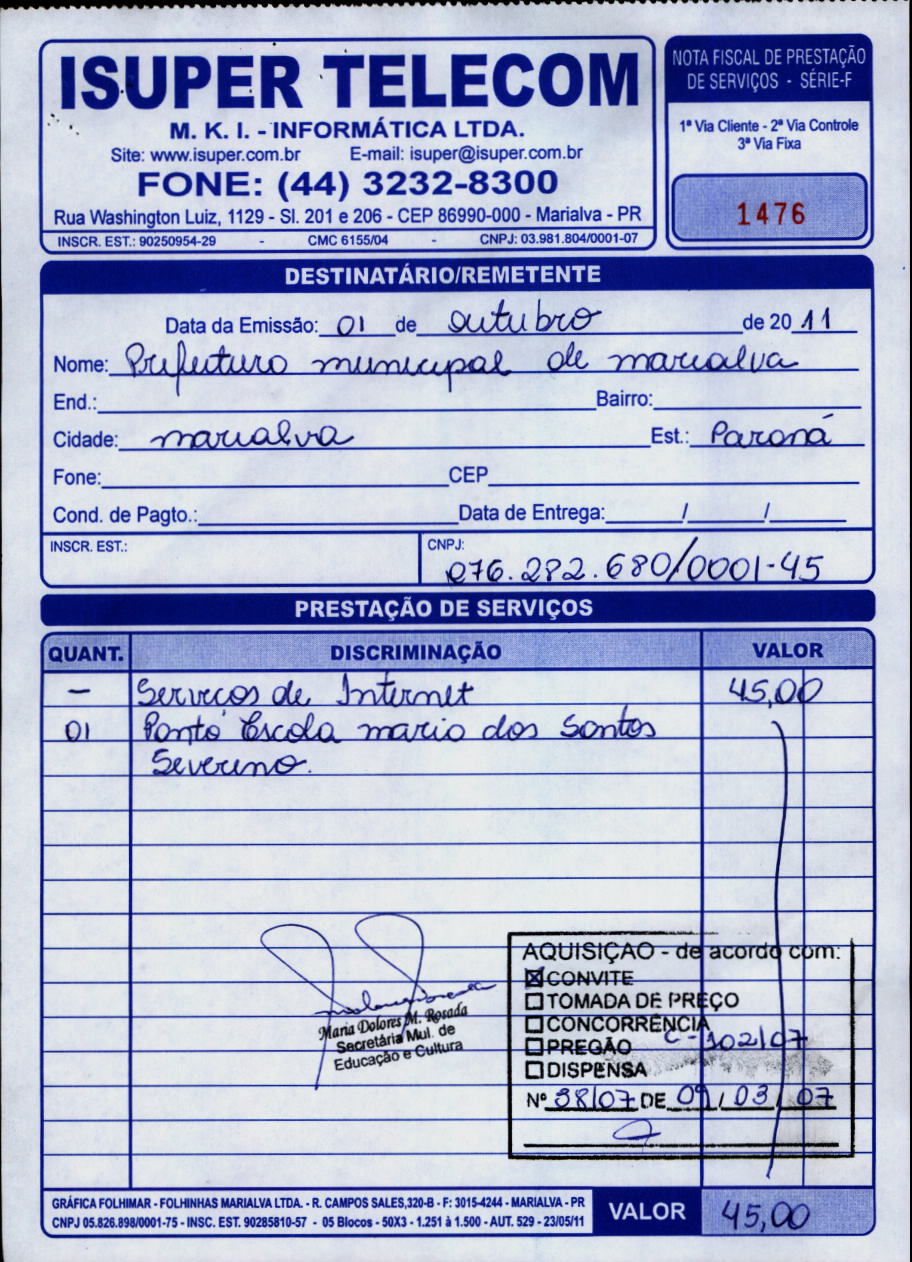 ISUPER TELECOM
M. K. I. - INFORMÁTICA LTDA.
Site: www.isuper.com.br E-mail: isuper@isuper.com.br
FONE: (44) 3232-8300
Rua Washington Luiz, 1129 - Sl. 201 e 206 - CEP 86990-000 - Marialva - PR
INSCR. EST.: 90250954-29 - CMC 6155/04 - CNPJ: 03.981.804/0001-07
NOTA FISCAL DE PRESTAÇÃO
DE SERVIÇOS - SÉRIE-F
1ª Via Cliente - 2ª Via Controle
3ª Via Fixa
1476
DESTINATÁRIO/REMETENTE
Data da Emissão: 01 de outubro de 2011
Nome: Prefeitura municipal de marialva
End.: Bairro:
Cidade: marialva Est.: Paraná
Fone: CEP
Cond. de Pagto.: Data de Entrega: / /
INSCR. EST.: CNPJ:
076.282.680/0001-45
PRESTAÇÃO DE SERVIÇOS
QUANT. DISCRIMINAÇÃO VALOR
- Serviços de Internet 45,00
01 Ponto Escola maria dos Santos
Severino.
AQUISIÇÃO - de acordo com:
CONVITE
TOMADA DE PREÇO
CONCORRÊNCIA
PREGÃO C-102/07
DISPENSA
Nº 38/07 DE 09/03/07
Maria Dolores M. Rosada
Secretária Mul. de
Educação e Cultura
GRÁFICA FOLHIMAR - FOLHINHAS MARIALVA LTDA. - R. CAMPOS SALES,320-B - F: 3015-4244 - MARIALVA - PR
CNPJ 05.826.898/0001-75 - INSC. EST. 90285810-57 - 05 Blocos - 50X3 - 1.251 à 1.500 - AUT. 529 - 23/05/11
VALOR 45,00